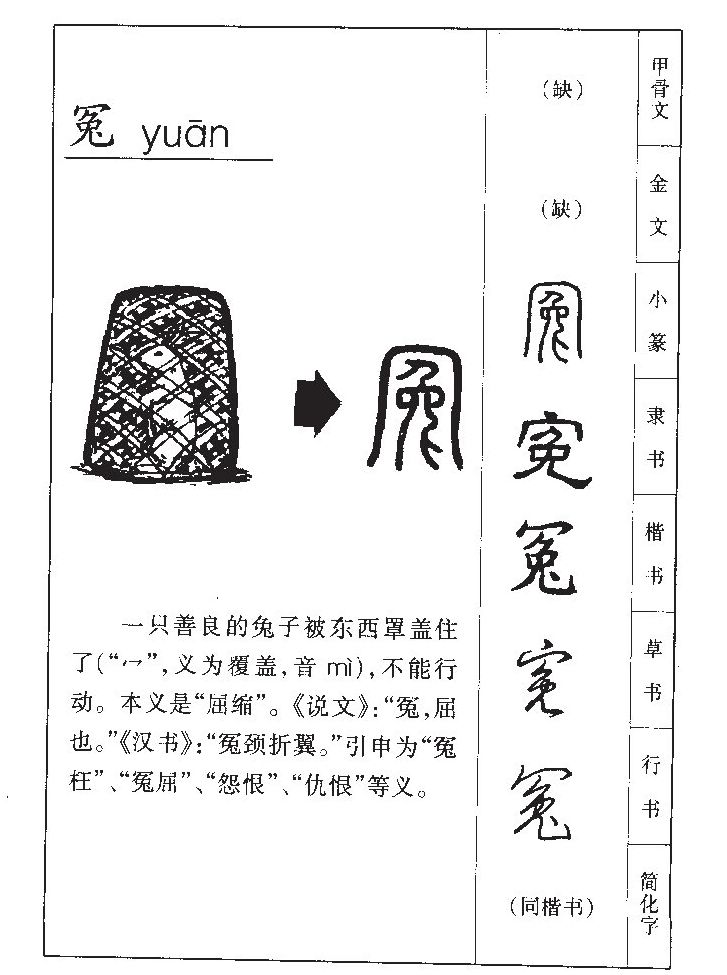 冤 yuān
一只善良的兔子被东西罩盖住
了(“冖”,义为覆盖,音 mì),不能行
动。本义是“屈缩”。《说文》:“冤,屈
也。”《汉书》:“冤颈折翼。”引申为“冤
枉”、“冤屈”、“怨恨”、“仇恨”等义。
冤
(缺) 甲骨文
(缺) 金文
冤 小篆
冤 隶书
冤 楷书
冤 草书
冤 行书
(同楷书) 简化字